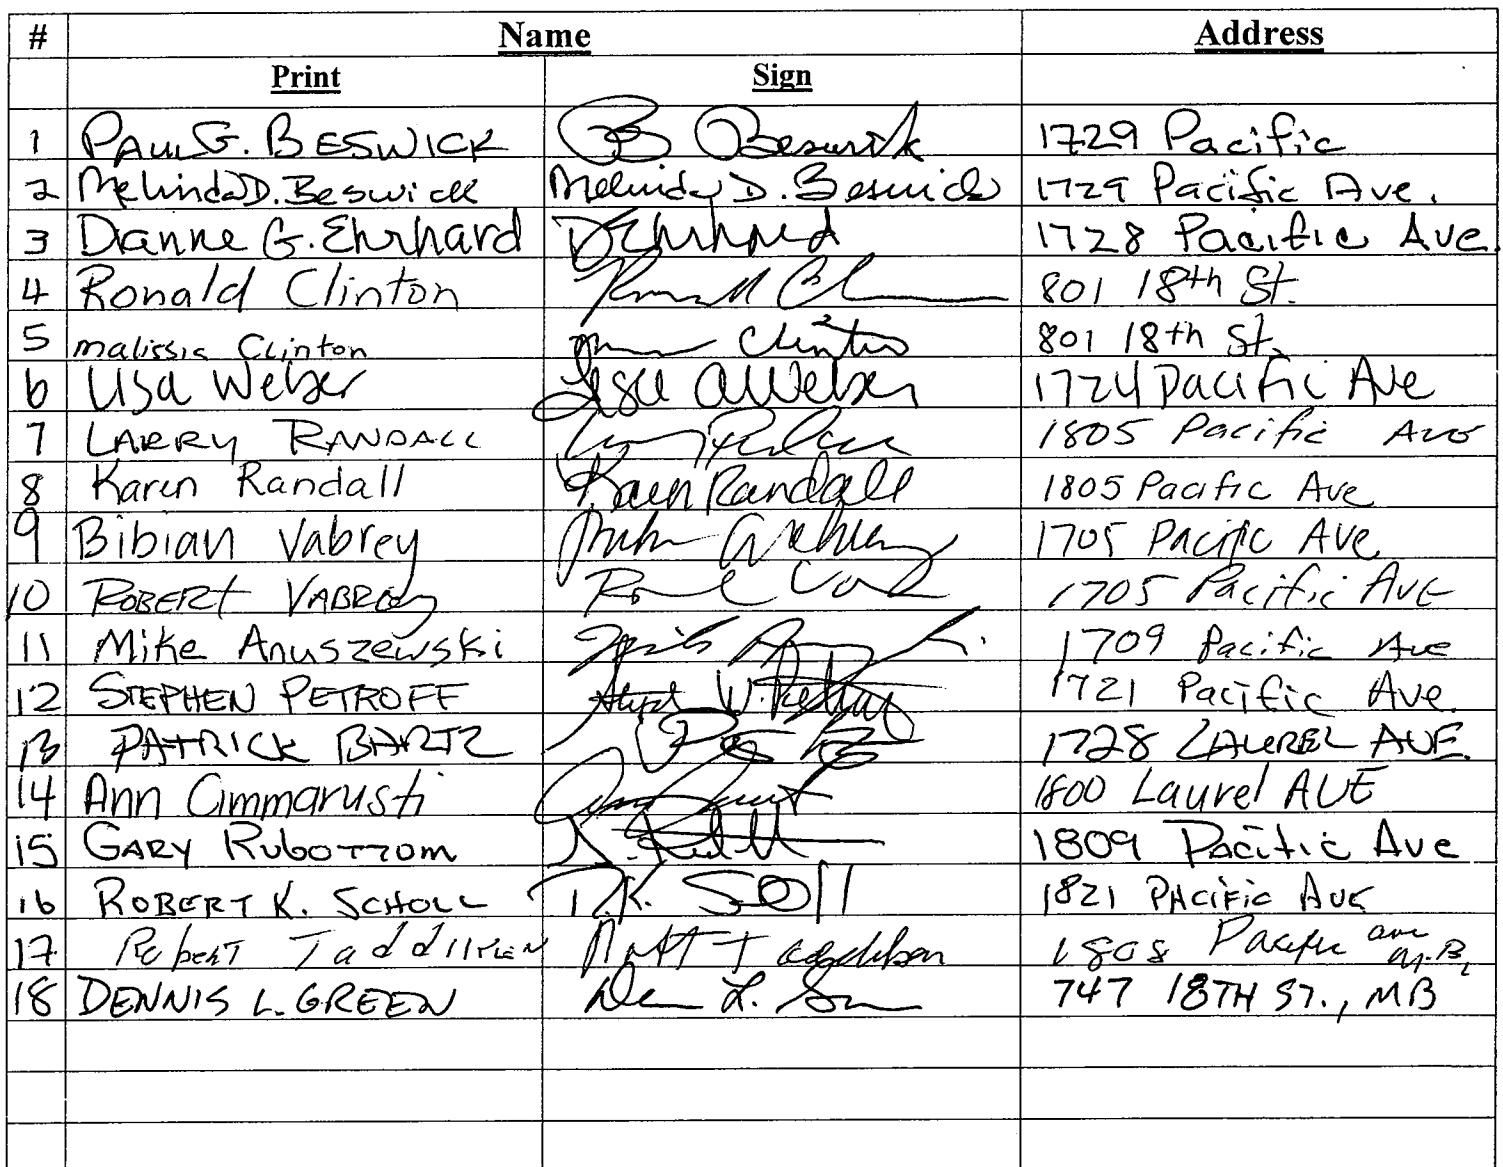 # Name Address
Print Sign
1 PAUL G. BESWICK B Beswick 1729 Pacific
2 Melinda D. Beswick Melinda D. Beswick 1729 Pacific Ave.
3 Dianne G. Ehrhard D Ehrhard 1728 Pacific Ave.
4 Ronald Clinton 801 18th St.
5 malissia Clinton Clinton 801 18th St.
6 Lisa Weber Lisa A Weber 1724 Pacific Ave
7 LARRY RANDALL 1805 Pacific Ave
8 Karen Randall Karen Randall 1805 Pacific Ave
9 Bibian Vabrey 1705 Pacific Ave
10 ROBERT VABREY 1705 Pacific Ave
11 Mike Anuszewski 1709 Pacific Ave
12 STEPHEN PETROFF 1721 Pacific Ave.
13 PATRICK BARTZ 1728 LAUREL AVE.
14 Ann Cimmarusti 1800 Laurel AVE
15 GARY RUBOTTOM 1809 Pacific Ave
16 ROBERT K. SCHOLL R.K. Scholl 1821 PACIFIC AVE
17 Robert 1808 Pacific ave M.B.
18 DENNIS L. GREEN L. 747 18TH ST., MB